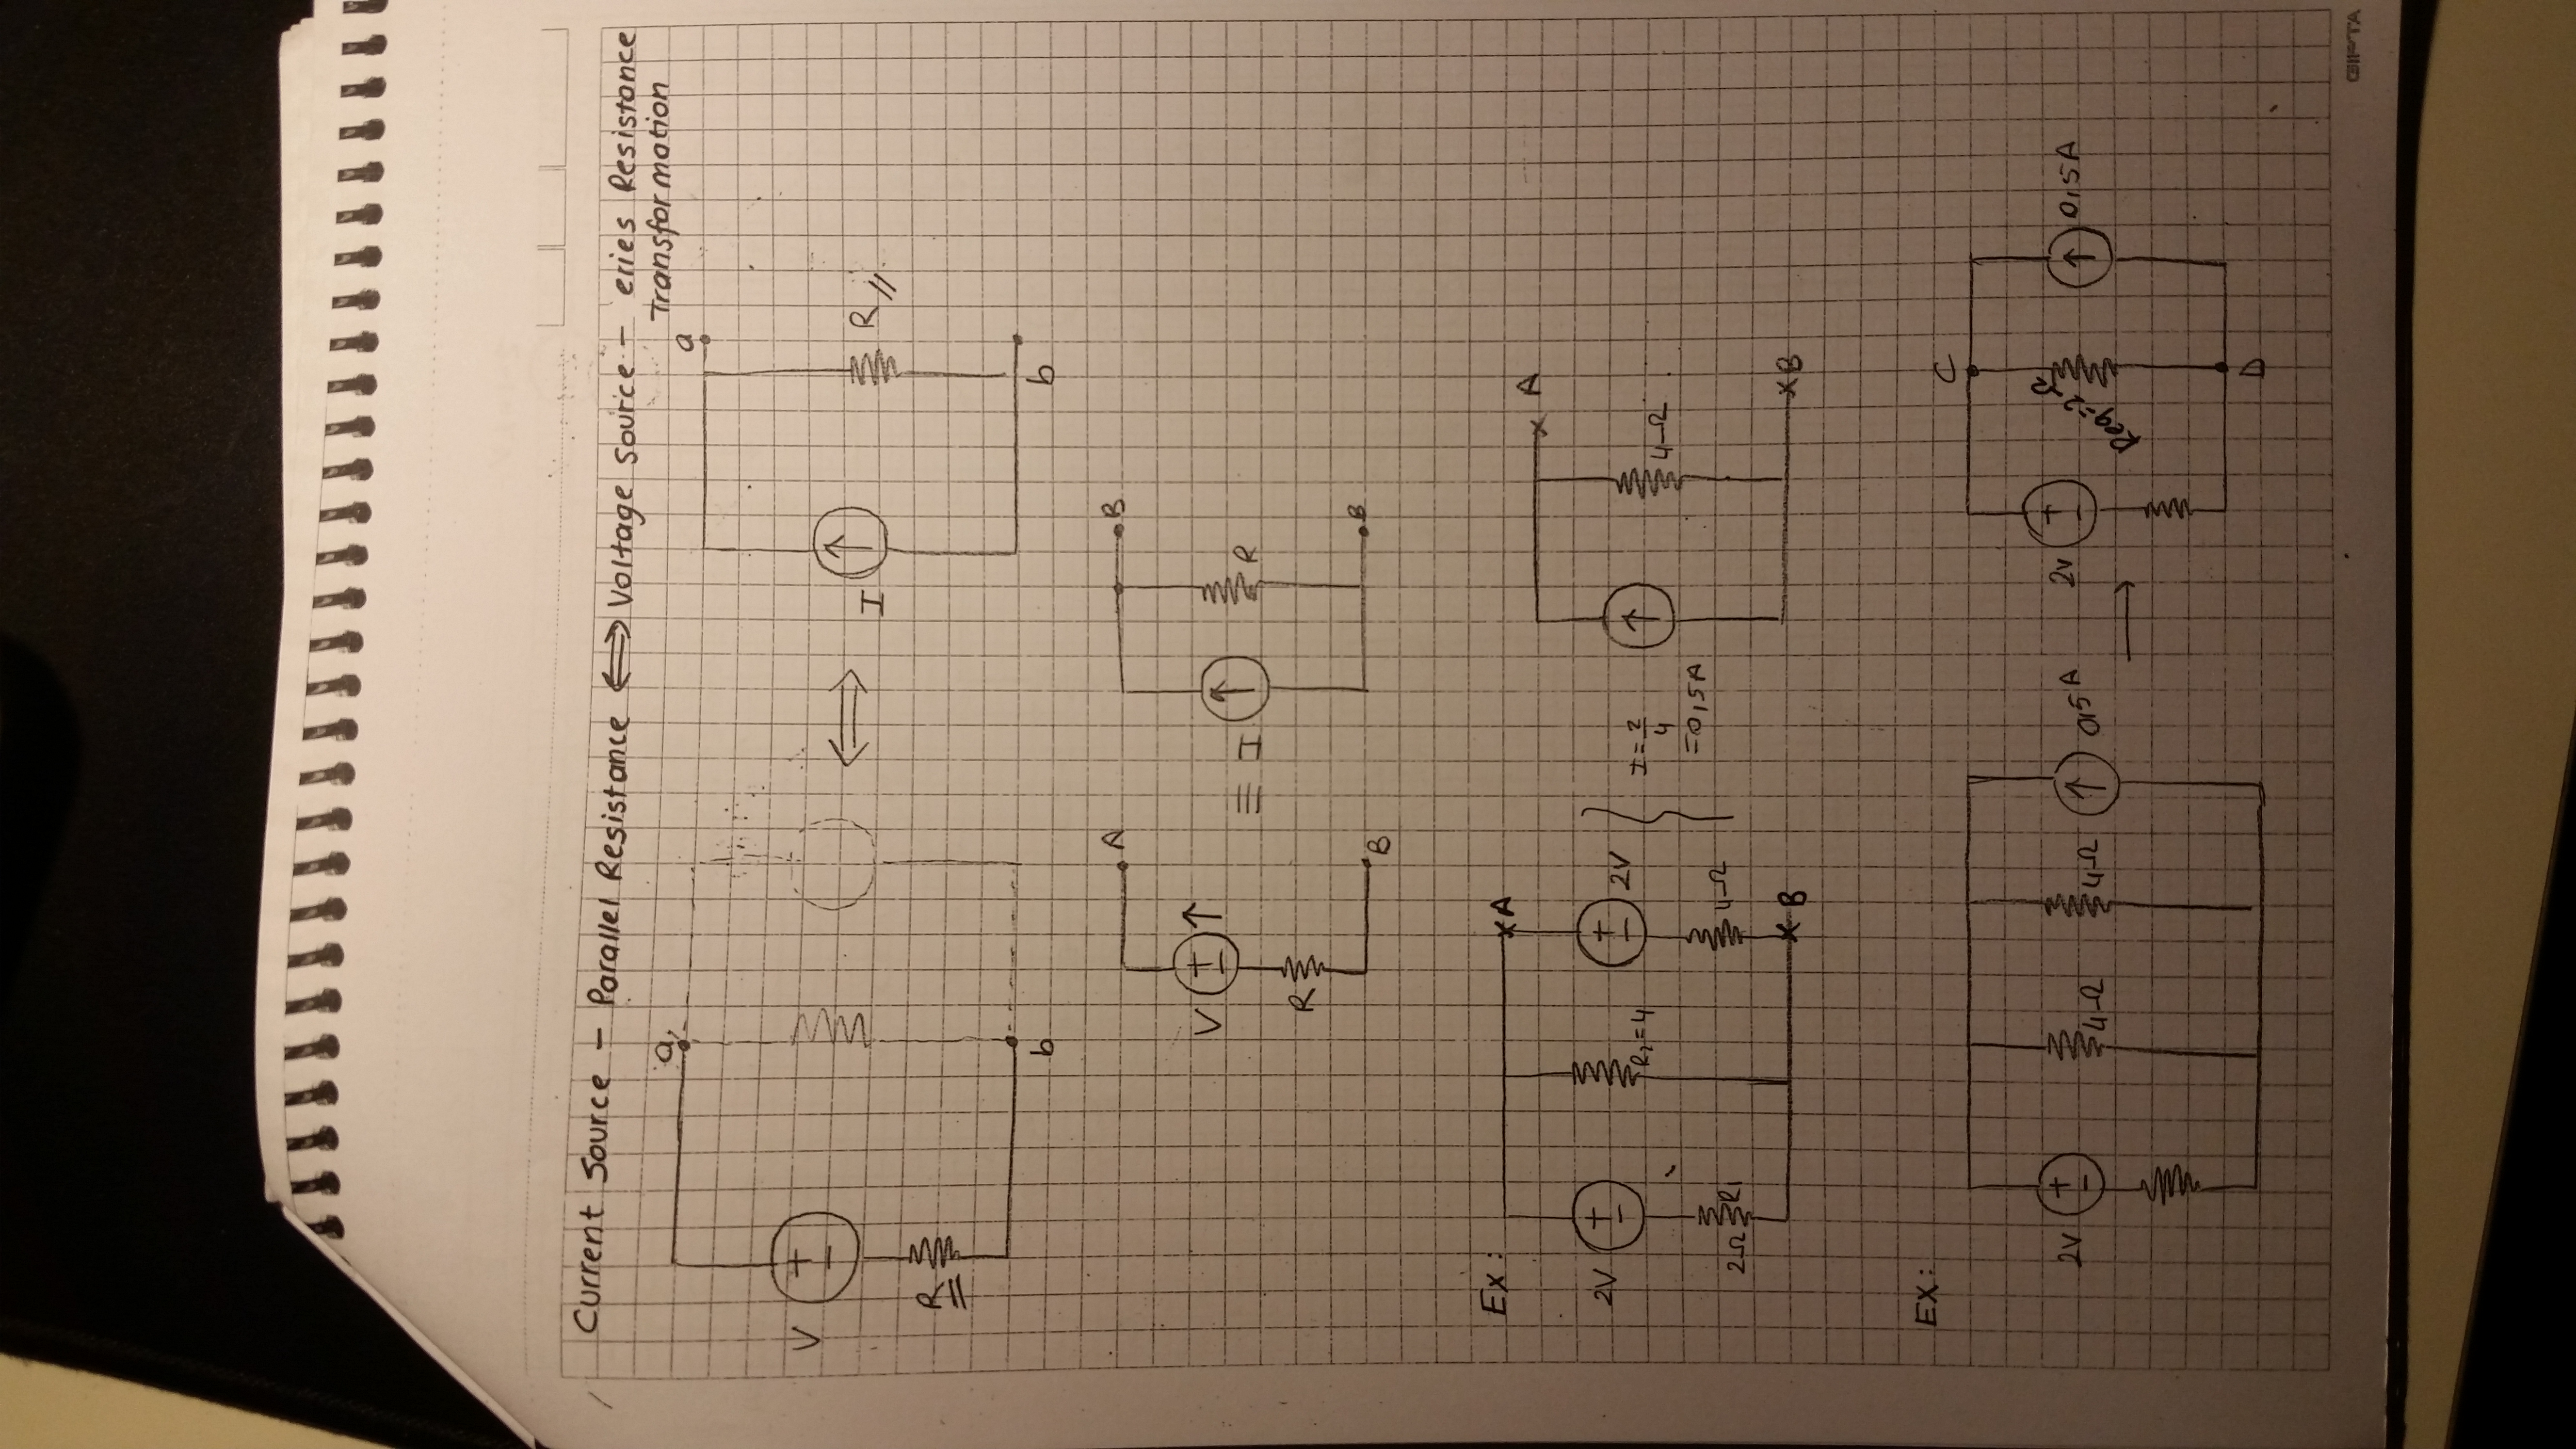 Current Source - Parallel Resistance ⟺ Voltage Source - eries Resistance
Transformation
a
a
V
+
-
R
I
R //
b
b
A
B
V
+
-
≡ I
R
R
B
B
Ex:
A
A
2V
+
-
R₂=4
+
-
2V
I=2/4
=0,5A
4Ω
2Ω
R1
4Ω
B
B
EX:
C
2V
+
-
4Ω
4Ω
0,5A
2V
+
-
Req=2Ω
0,5A
D
GIPTA